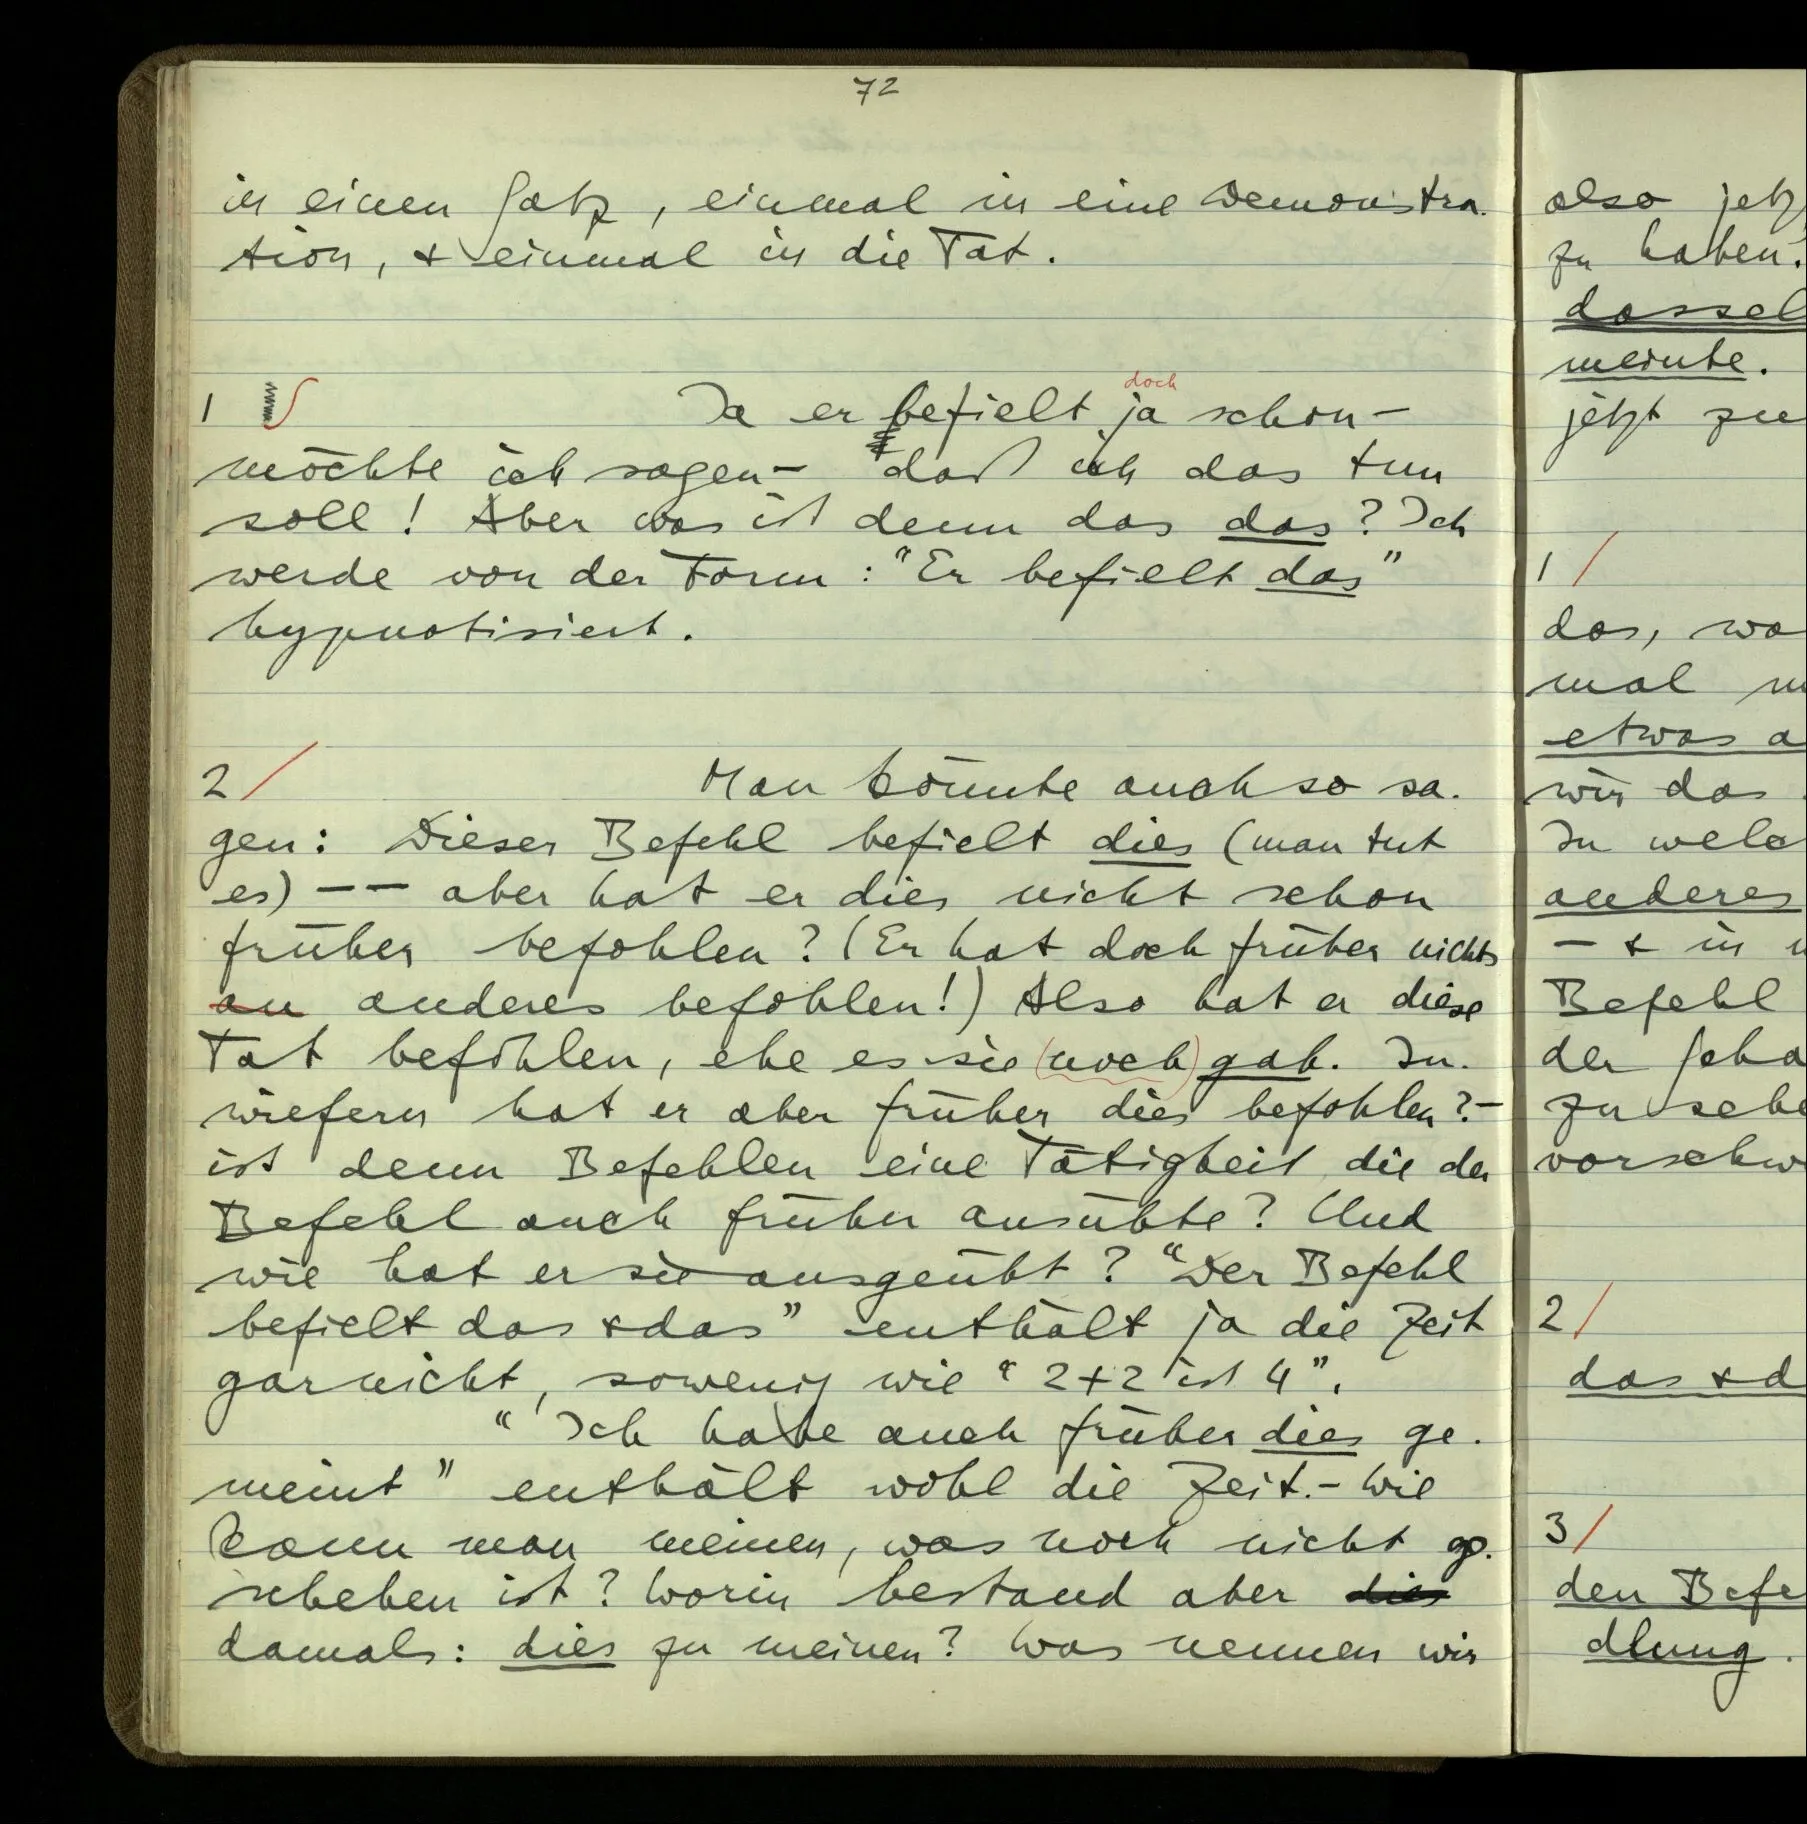 72
in einen Satz, einmal in eine Demonstra-
tion, & einmal in die Tat.
1 ∫ Ja er befielt ja schon –
doch
möchte ich sagen – daß ich das tun
soll! Aber was ist denn das das? Ich
werde von der Form: "Er befielt das"
hypnotisiert.
2 / Man könnte auch so sa-
gen: Dieser Befehl befielt dies (man tut
es) –– aber hat er dies nicht schon
früher befohlen? (Er hat doch früher nichts
an anderes befohlen!) Also hat er diese
Tat befohlen, ehe es sie (noch) gab. In-
wiefern hat er aber früher dies befohlen? –
ist denn Befehlen eine Tätigkeit die der
Befehl auch früher ausübte? Und
wie hat er sie ausgeübt? "Der Befehl
befielt das & das" enthält ja die Zeit
garnicht, sowenig wie "2+2 ist 4".
"Ich habe auch früher dies ge-
meint" enthält wohl die Zeit. – Wie
kann man meinen, was noch nicht ge-
schehen ist? Worin bestand aber dies
damals: dies zu meinen? Was nennen wir
also jetz
zu haben.
dassel
meinte.
jetzt zu
1 /
das, wa
mal
etwas a
wir das
In welc
anderes
– & in
Befehl
der Scha
zu sehe
vorschwe
2 /
das & d
3 /
den Befe
dlung.